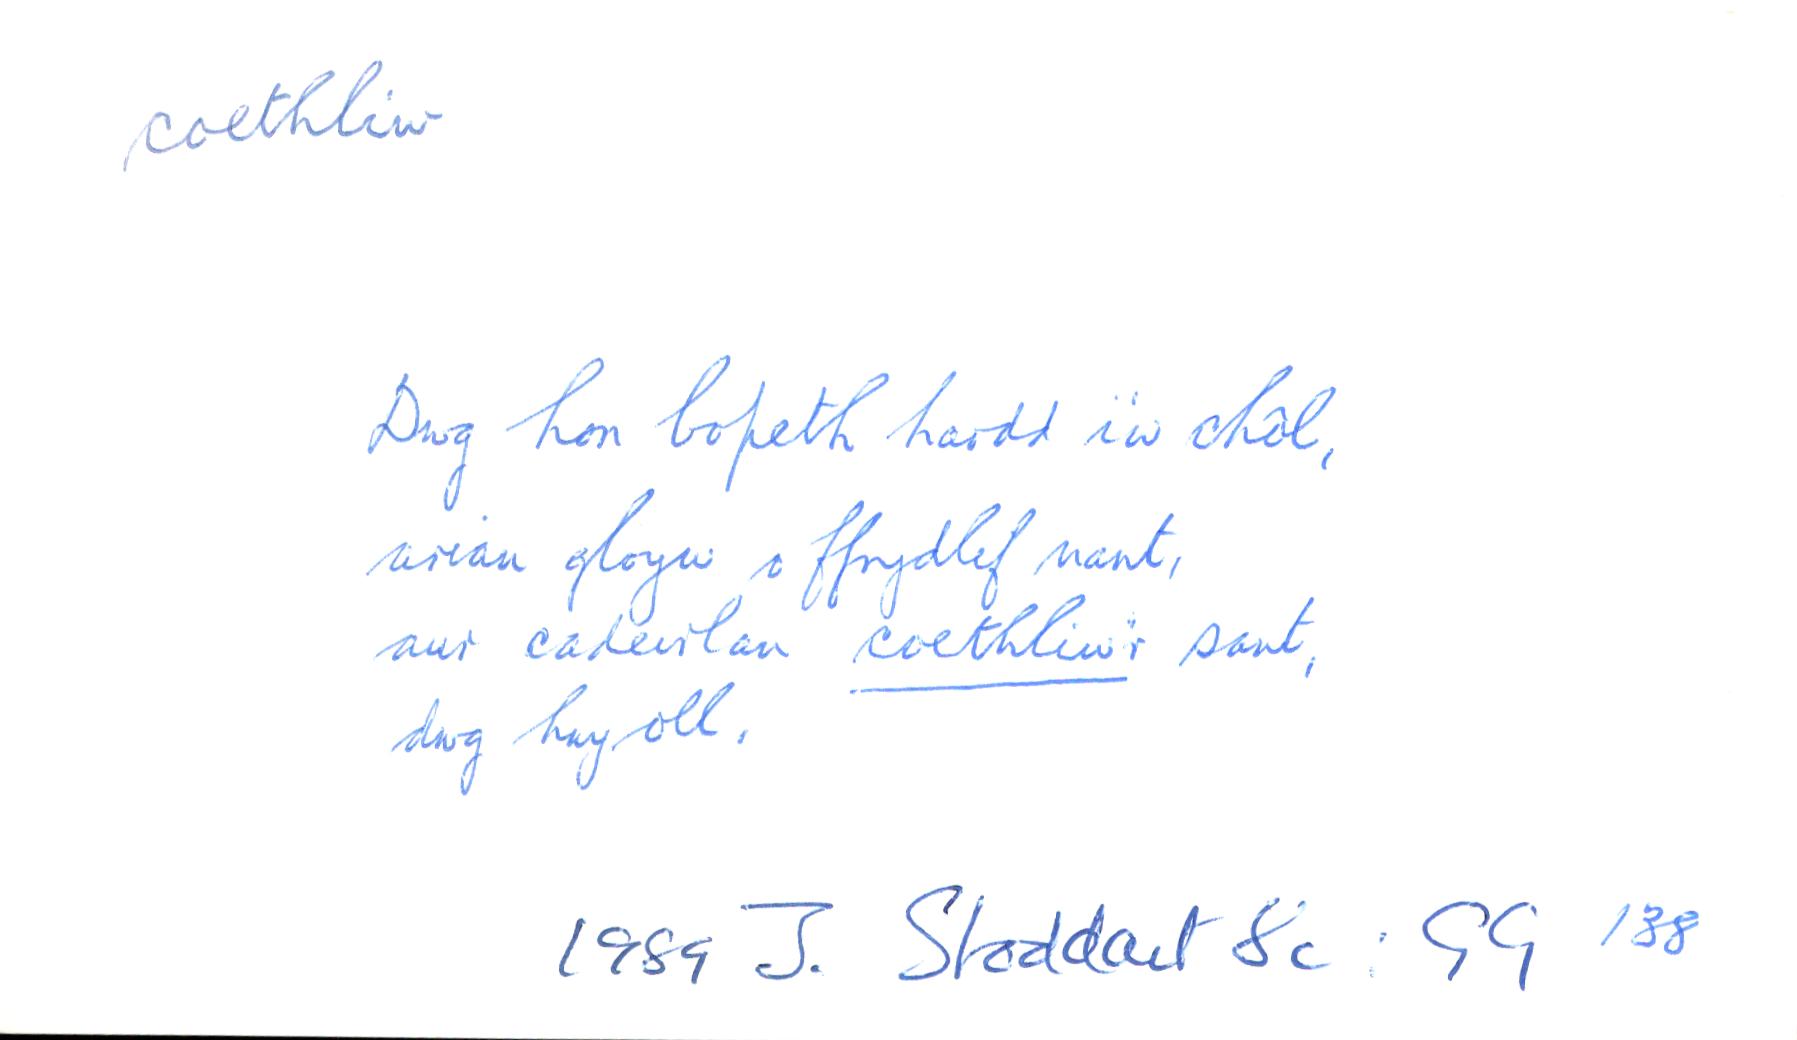 coethliw
Dwg hon bopeth hardd i'w chôl,
arian gloyw o ffrydlef nant,
aur cadeirlan coethliw'r sant,
dwg hwy oll.
1989 J. Stoddart &c : GG 138